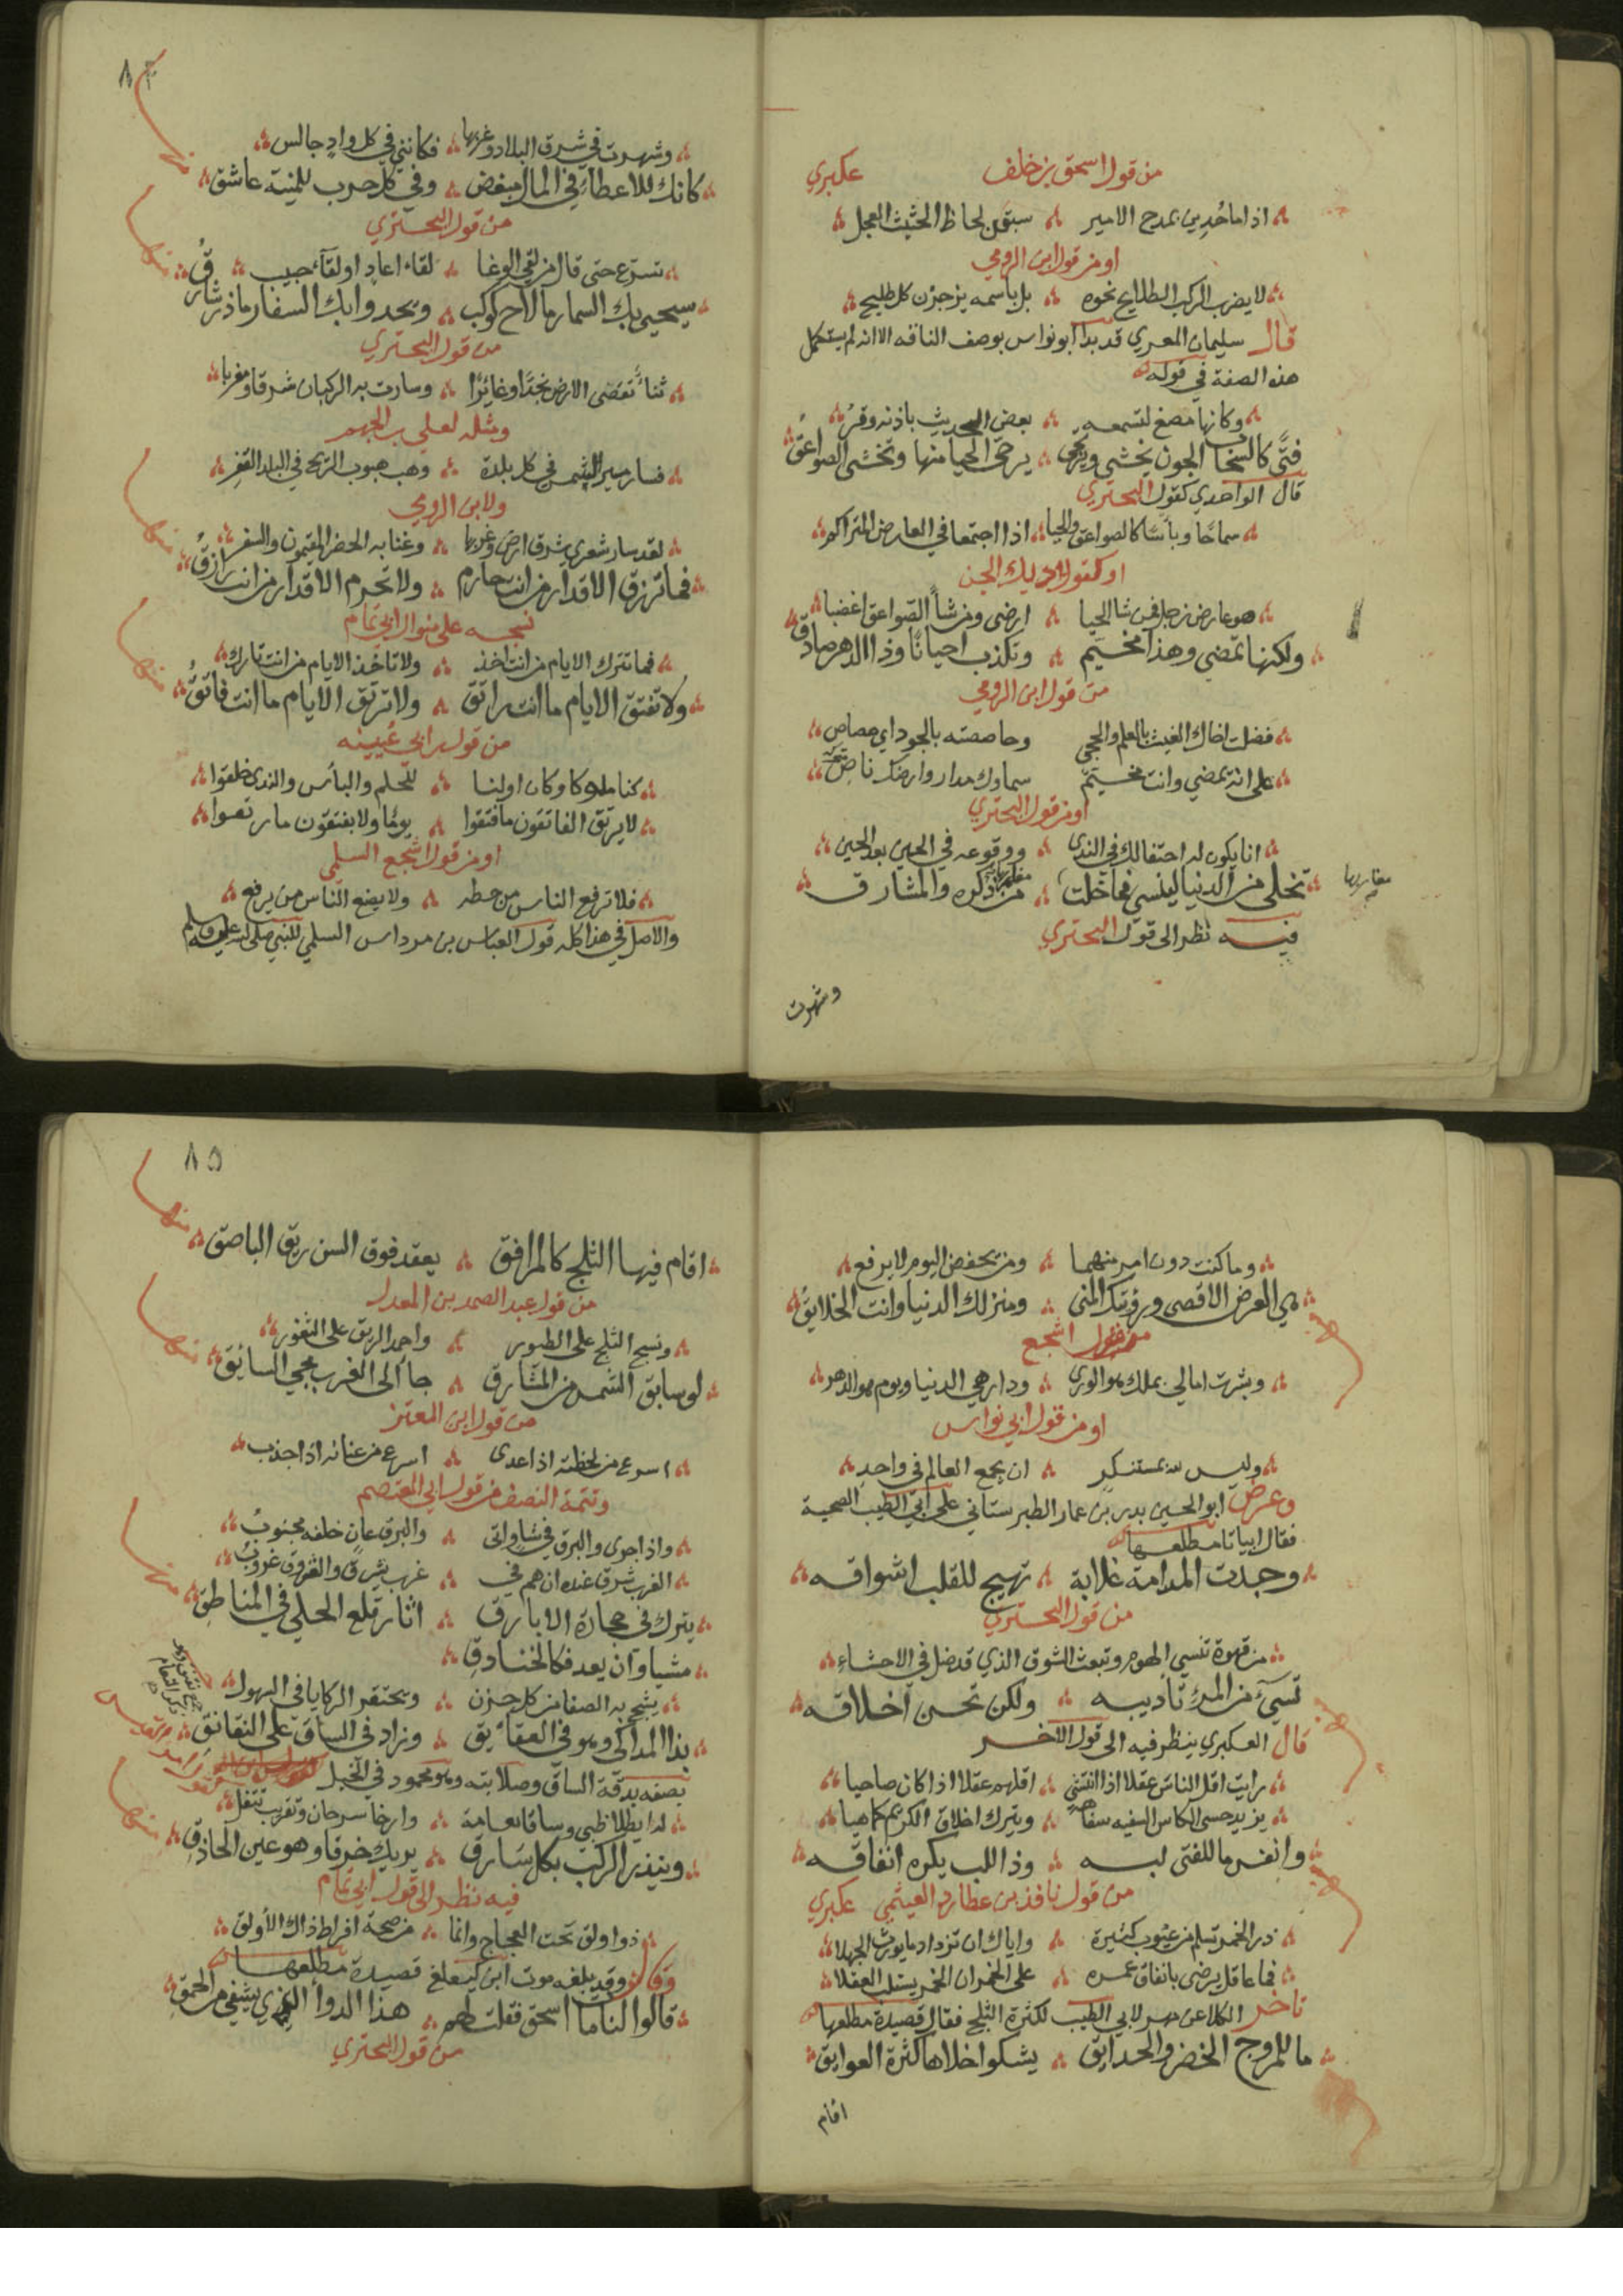 من قول اسحق بن خلف عكبري
اذا ما حُدِين بمدح الامير سبقن لحاظ الحثيث العجل
او من قول ابن الرومي
لا يضرب الركب الطلايح نحوه بل باسمه يزجرن كل طليح
قال سليمان المعري قد بدا ابو نواس بوصف الناقه الا انه لم يستكمل
هذه الصفة في قوله
وكانها مصغ لتسمعه بعض الحديث باذنه وقر
فتى كالسحاب الجون يخشى ويرتجى يرجى الحيا منها وتخشى الصواعق
قال الواحدي كقول البحتري
سماحًا وبأسًا كالصواعق والحيا اذا اجتمعا في العارض المتراكم
او كقول ديك الجن
هو عارض زجل فمن شا الحيا ارضى ومن شأ الصواعق اغضبا
ولكنها تمضي وهذا مخيم وتكذب احيانًا وذا الدهر صادق
من قول ابن الرومي
فضلت اخاك الغيث بالعلم والحجى وحاصصته بالجود اي حصاص
على انه يمضي وانت مخيم سماوك مدرار وارضك ناصِ
او من قول البحتري
انا يكون له احتفالك في الندى ووقوعه في الحين بعد الحين
تخلى من الدنيا لينسى فما خلت من ذكره والمشارق
مغاربها
فيه نظر الى قول البحتري
وشهرت
٨٤
وشهرت في شرق البلاد وغربها فكانني في كل وادٍ جالس
كانك للاعطاء في المال مبغض وفي كل حرب للمنية عاشق
منها
من قول البحتري
تسرّع حتى قال من لقي الوغا لقاء اعادٍ او لقآء حبيب
سيحيي بك السمار ما لاح كوكب ويحدوا بك السفار ما ذر شارق
منها
من قول البحتري
ثناءٌ تقصى الارض نجدًا وغائرًا وسارت به الركبان شرقا ومغربا
ومثله لعلي بن الجهم
فسار مسير الشمس في كل بلدة وهب هبوب الريح في البلد القفر
ولابن الرومي
لقد سار شعري شرق ارض وغربها وغنا به الحضر المقيمون والسفر
فما ترزق الاقدار من انت حارم ولا تحرم الاقدار من انت رازق
منها
نسجه على منوال ابي تمام
فما تترك الايام من انت اخذ ولا تاخذ الايام من انت تارك
ولا تفتق الايام ما انت راتق ولا ترتق الايام ما انت فاتق
منها
من قول ابي عُيينه
كنا ملوكا وكان اولنا للحلم والبأس والندى خلقوا
لا يرتق الفاتقون ما فتقوا يومًا ولا يفتقون ما رتقوا
او من قول اشجع السلمي
فلا ترفع الناس من حطه ولا يضع الناس من يرفع
والاصل في هذا كله قول العباس بن مرداس السلمي للنبي صلى الله عليه وسلم
وما كنت دون امرٍ منهما ومن تخفض اليوم لا يرفع
هي الغرض الاقصى ورؤيتك المنى ومنزلك الدنيا وانت الخلايق
منها
من قول اشجع
وبشرت امالي بملك هو الورى ودار هي الدنيا ويوم هو الدهر
او من قول ابي نواس
وليس لله بمستنكرٍ ان يجمع العالم في واحدِ
وعرض ابو الحسين بدر بن عمار الطبرستاني على ابي الطيب الصحبة
فقال ابياتا مطلعها
وجدت المدامة غلابة تهيج للقلب اشواقه
من قول البحتري
من قهوة تنسي الهموم وتبعث الشوق الذي قد ضل في الاحشاءِ
تسيء من المرء تاديبه ولكن تحسن اخلاقه
منها
قال العكبري ينظر فيه الى قول الاخر
رايت اقل الناس عقلا اذا انتشى اقلهم عقلا اذا كان صاحيا
يزيد حسى الكاس السفيه سفاهة ويترك اخلاق الكريم كما هيا
وانفس ما للفتى لبه وذا اللب يكره انفاقه
منها
من قول نافذ بن عطارد العيثمي عكبري
ذر الخمر تسلم من عيوب كثيرة واياك ان تزداد ما يورث الجهلا
فما عاقل يرضى بانفاق عمره على الخمر ان الخمر يستلب العقلا
تاخر الكلا عن مهر لابي الطيب لكثرة الثلج فقال قصيدة مطلعها
ما للمروج الخضر والحدايق يشكوا خلاها كثرة العوايق
اقام
٨٥
اقام فيها الثلج كالمرافق يعقد فوق السن ريق الباصق
منها
من قول عبد الصمد بن المعدل
ونسج الثلج على الطبور واجمد الريق على الثغور
لو سابق الشمس من المشارق جا الى الغرب مجي السابق
منها
من قول ابن المعتز
اسرع من لحظته اذا عدى اسرع من عنانه اذا جذب
وتتمة النصف من قول ابي المعتصم
واذا جرى والبرق في شاو اتى والبرق عانٍ خلفه مجنوبُ
الغرب شرق عنده ان هم في غرب بشرق والشروق غروبُ
يترك في حجارة الابارق اثار قلع الحلي في المناطق
منها
مشيا وان يعد فكالخنادق
يشج به الصفا من كل حزن ويحتقر الركايا في السهول
بذ المذاكي وهو في العقائق وزاد في الساق على النقانق
يصفه بدقة الساق وصلابته وهو محمود في الخيل
له ايطلا ظبي وساقا نعامة وارخا سرحان وتقريب تتفل
وينذر الركب بكل سارق يريك خرقا وهو عين الحاذق
منها
فيه نظر الى قول ابي تمام
ذو اولق تحت العجاج وانما من صحة افراط ذاك الأولق
وقال وقد بلغه موت ابن كيغلغ قصيدة مطلعها
قالوا لنا مات اسحق فقلت لهم هذا الدوأ الذي يشفي من الحمق
من قول البحتري